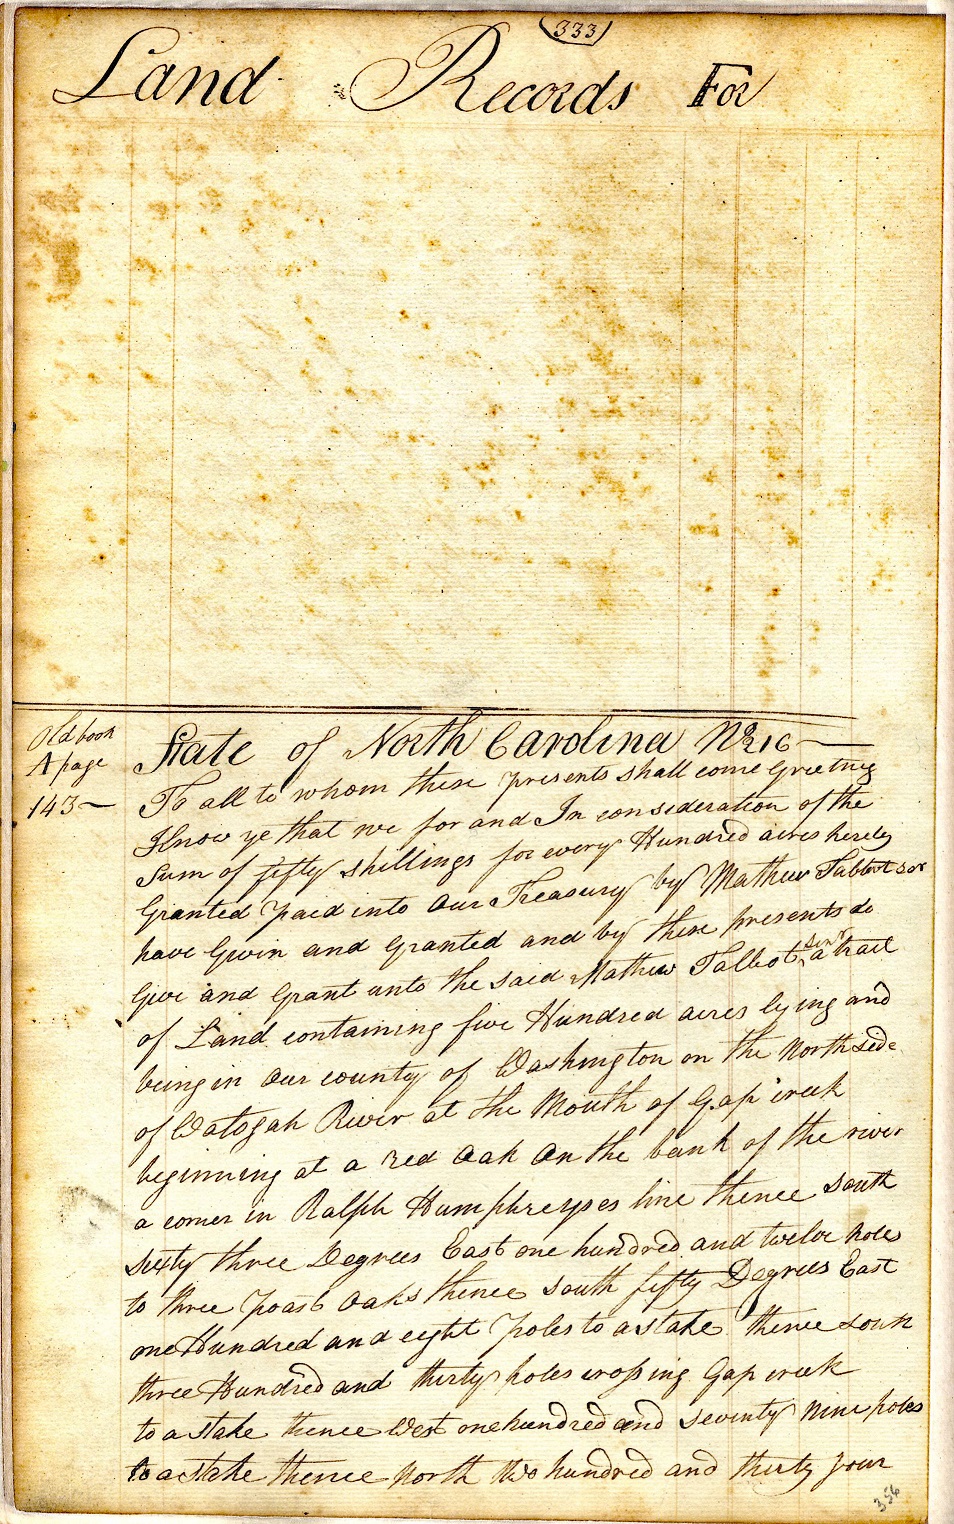 333
Land Records For
Old book
A page
143
State of North Carolina No 216
To all to whom these presents shall come Greeting
Know ye that we for and In consideration of the
Sum of fifty shillings for every Hundred acres hereby
Granted paid into our Treasury by Mathew Talbot ser
have Givin and Granted and by these presents do
Give and Grant unto the said Mathew Talbot senr a tract
of Land containing five Hundred acres lying and
being in our county of Washington on the North side
of Watogah River at the Mouth of Gap creek
beginning at a red oak on the bank of the river
a corner in Ralph Humphreyses line thence south
sixty three Degrees East one hundred and twelve poles
to three poast oaks thence south fifty Degrees East
one Hundred and eight poles to a stake thence south
three Hundred and thirty poles crossing Gap creek
to a stake thence West one hundred and seventy nine poles
to a stake thence North two hundred and thirty four
356